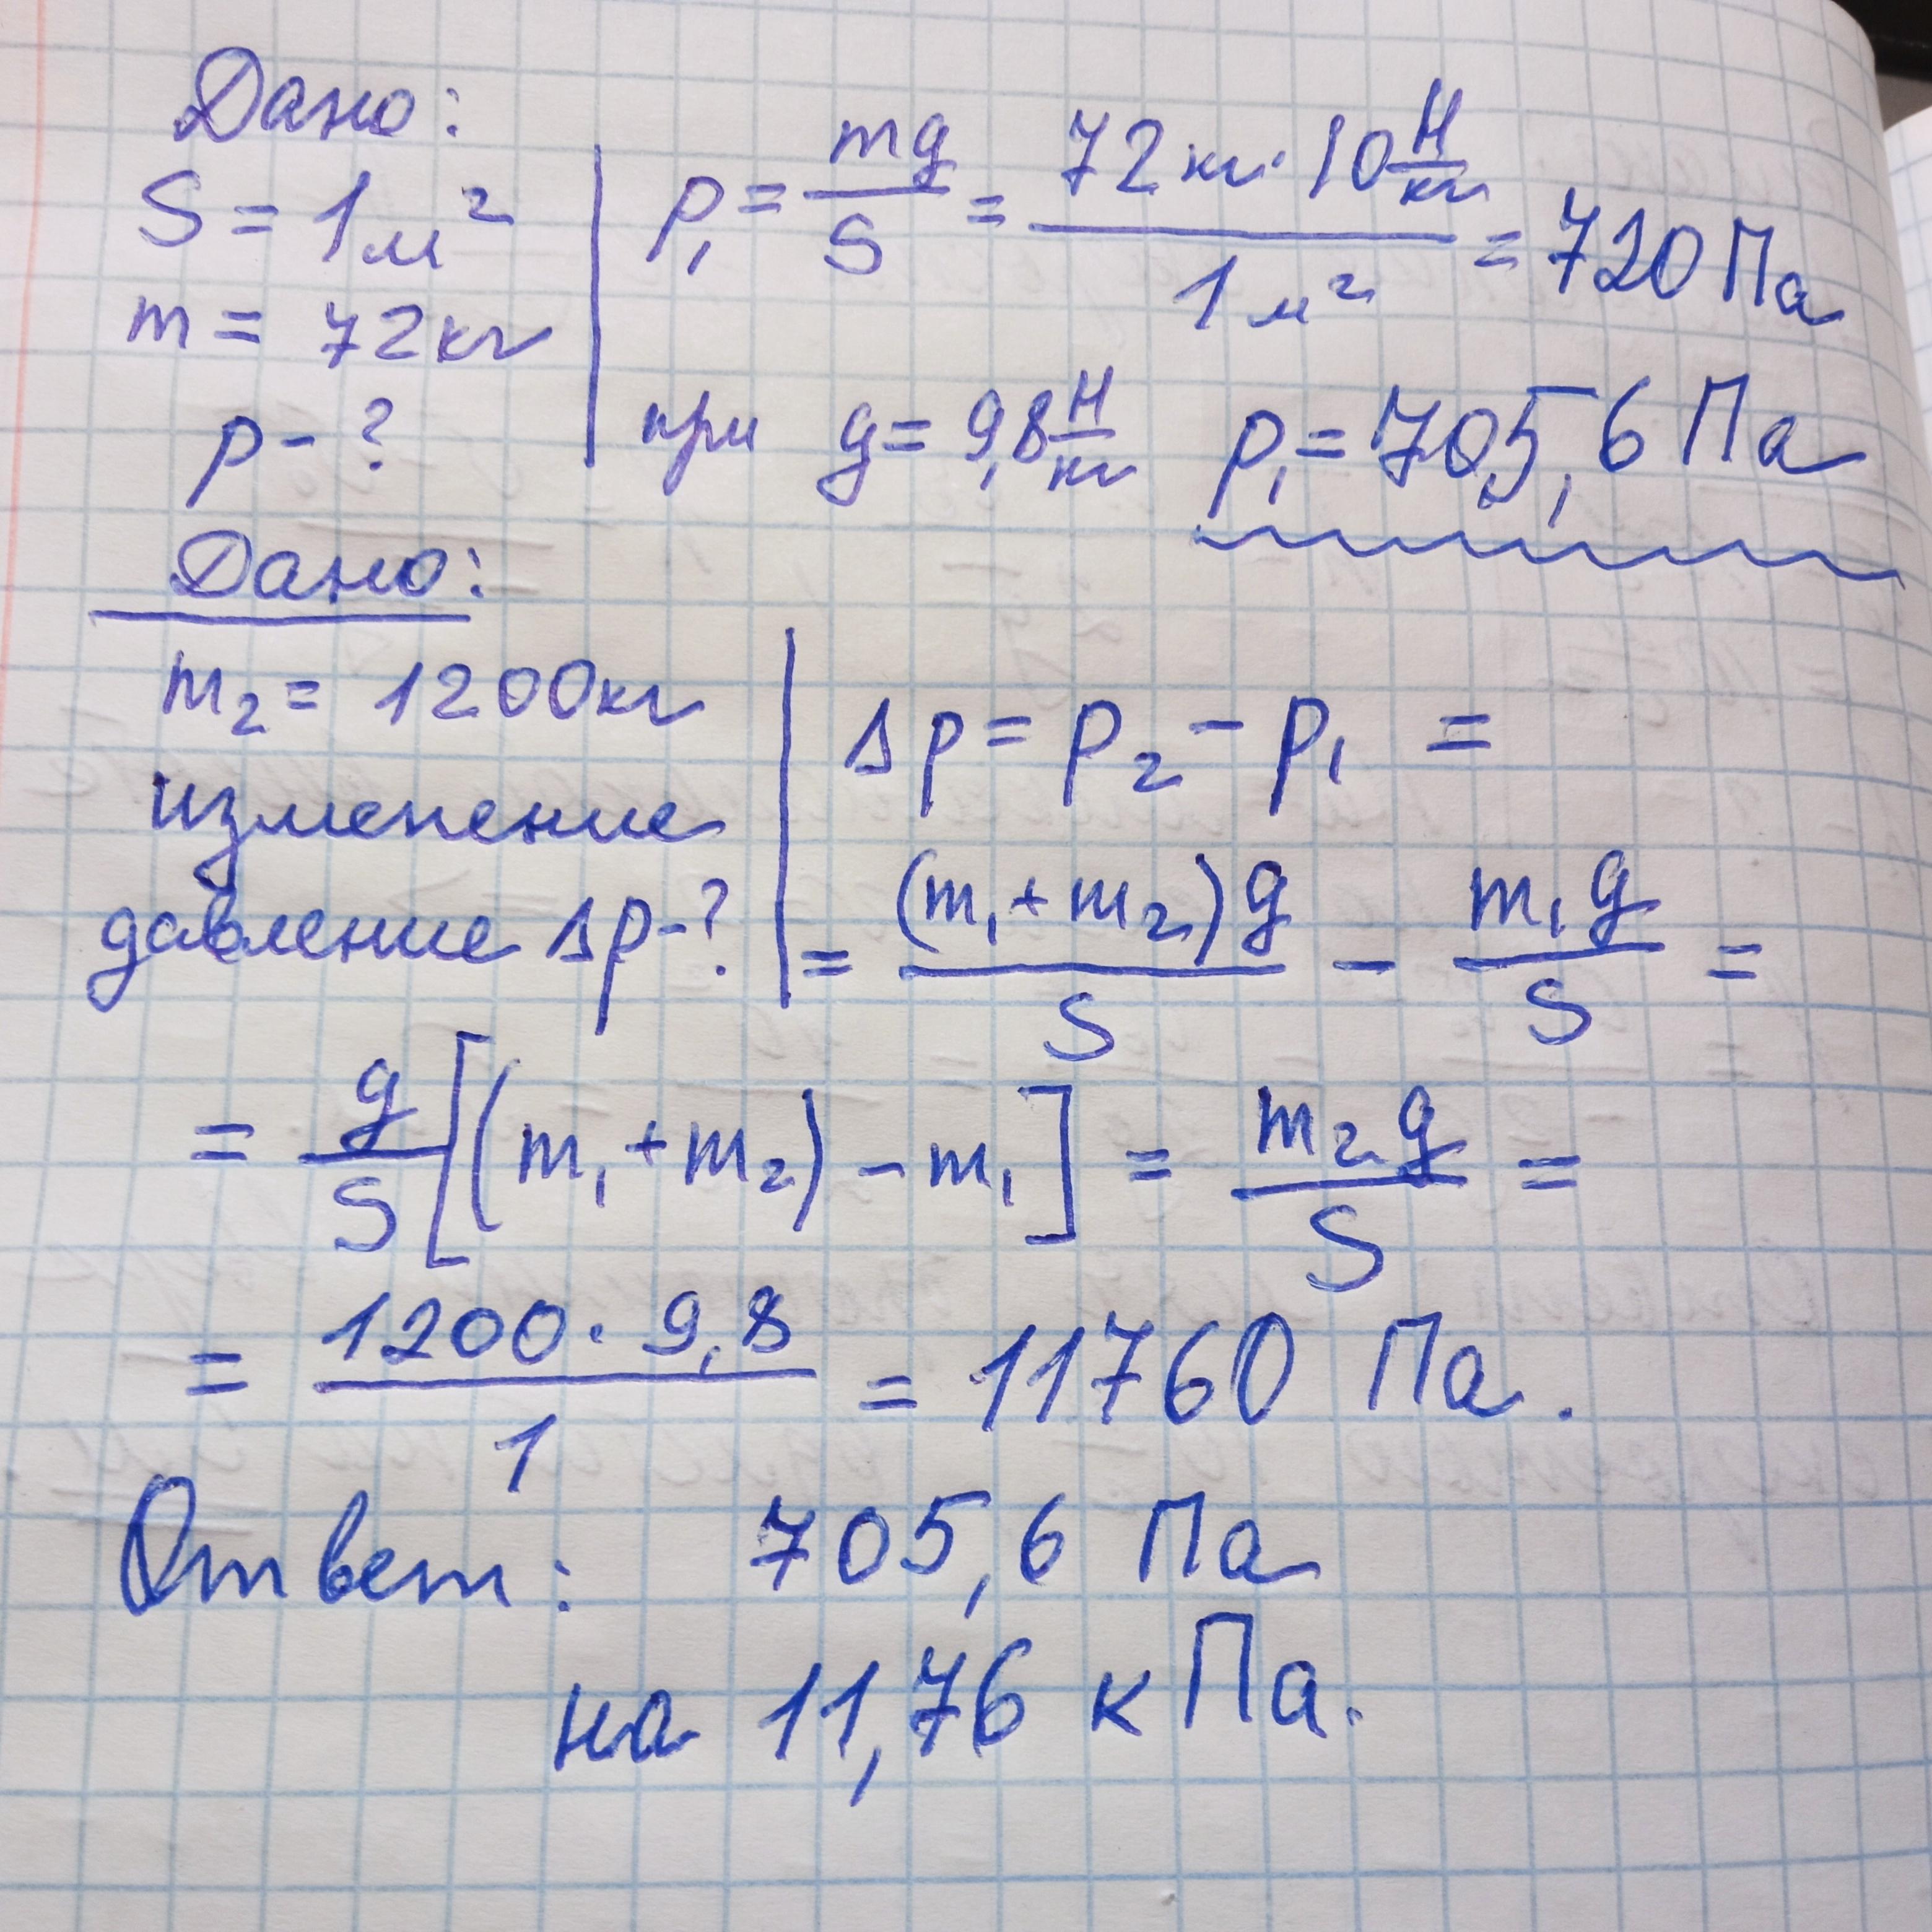 Дано:
S = 1 м²
m = 72 кг
p - ?
p₁ = mg/S = 72 кг · 10 Н/кг / 1 м² = 720 Па
при g = 9,8 Н/кг p₁ = 705,6 Па
Дано:
m₂ = 1200 кг
изменение
давление Δp - ?
Δp = p₂ - p₁ =
= (m₁ + m₂)g/S - m₁g/S =
= g/S [(m₁ + m₂) - m₁] = m₂g/S =
= 1200 · 9,8 / 1 = 11760 Па.
Ответ: 705,6 Па
на 11,76 кПа.